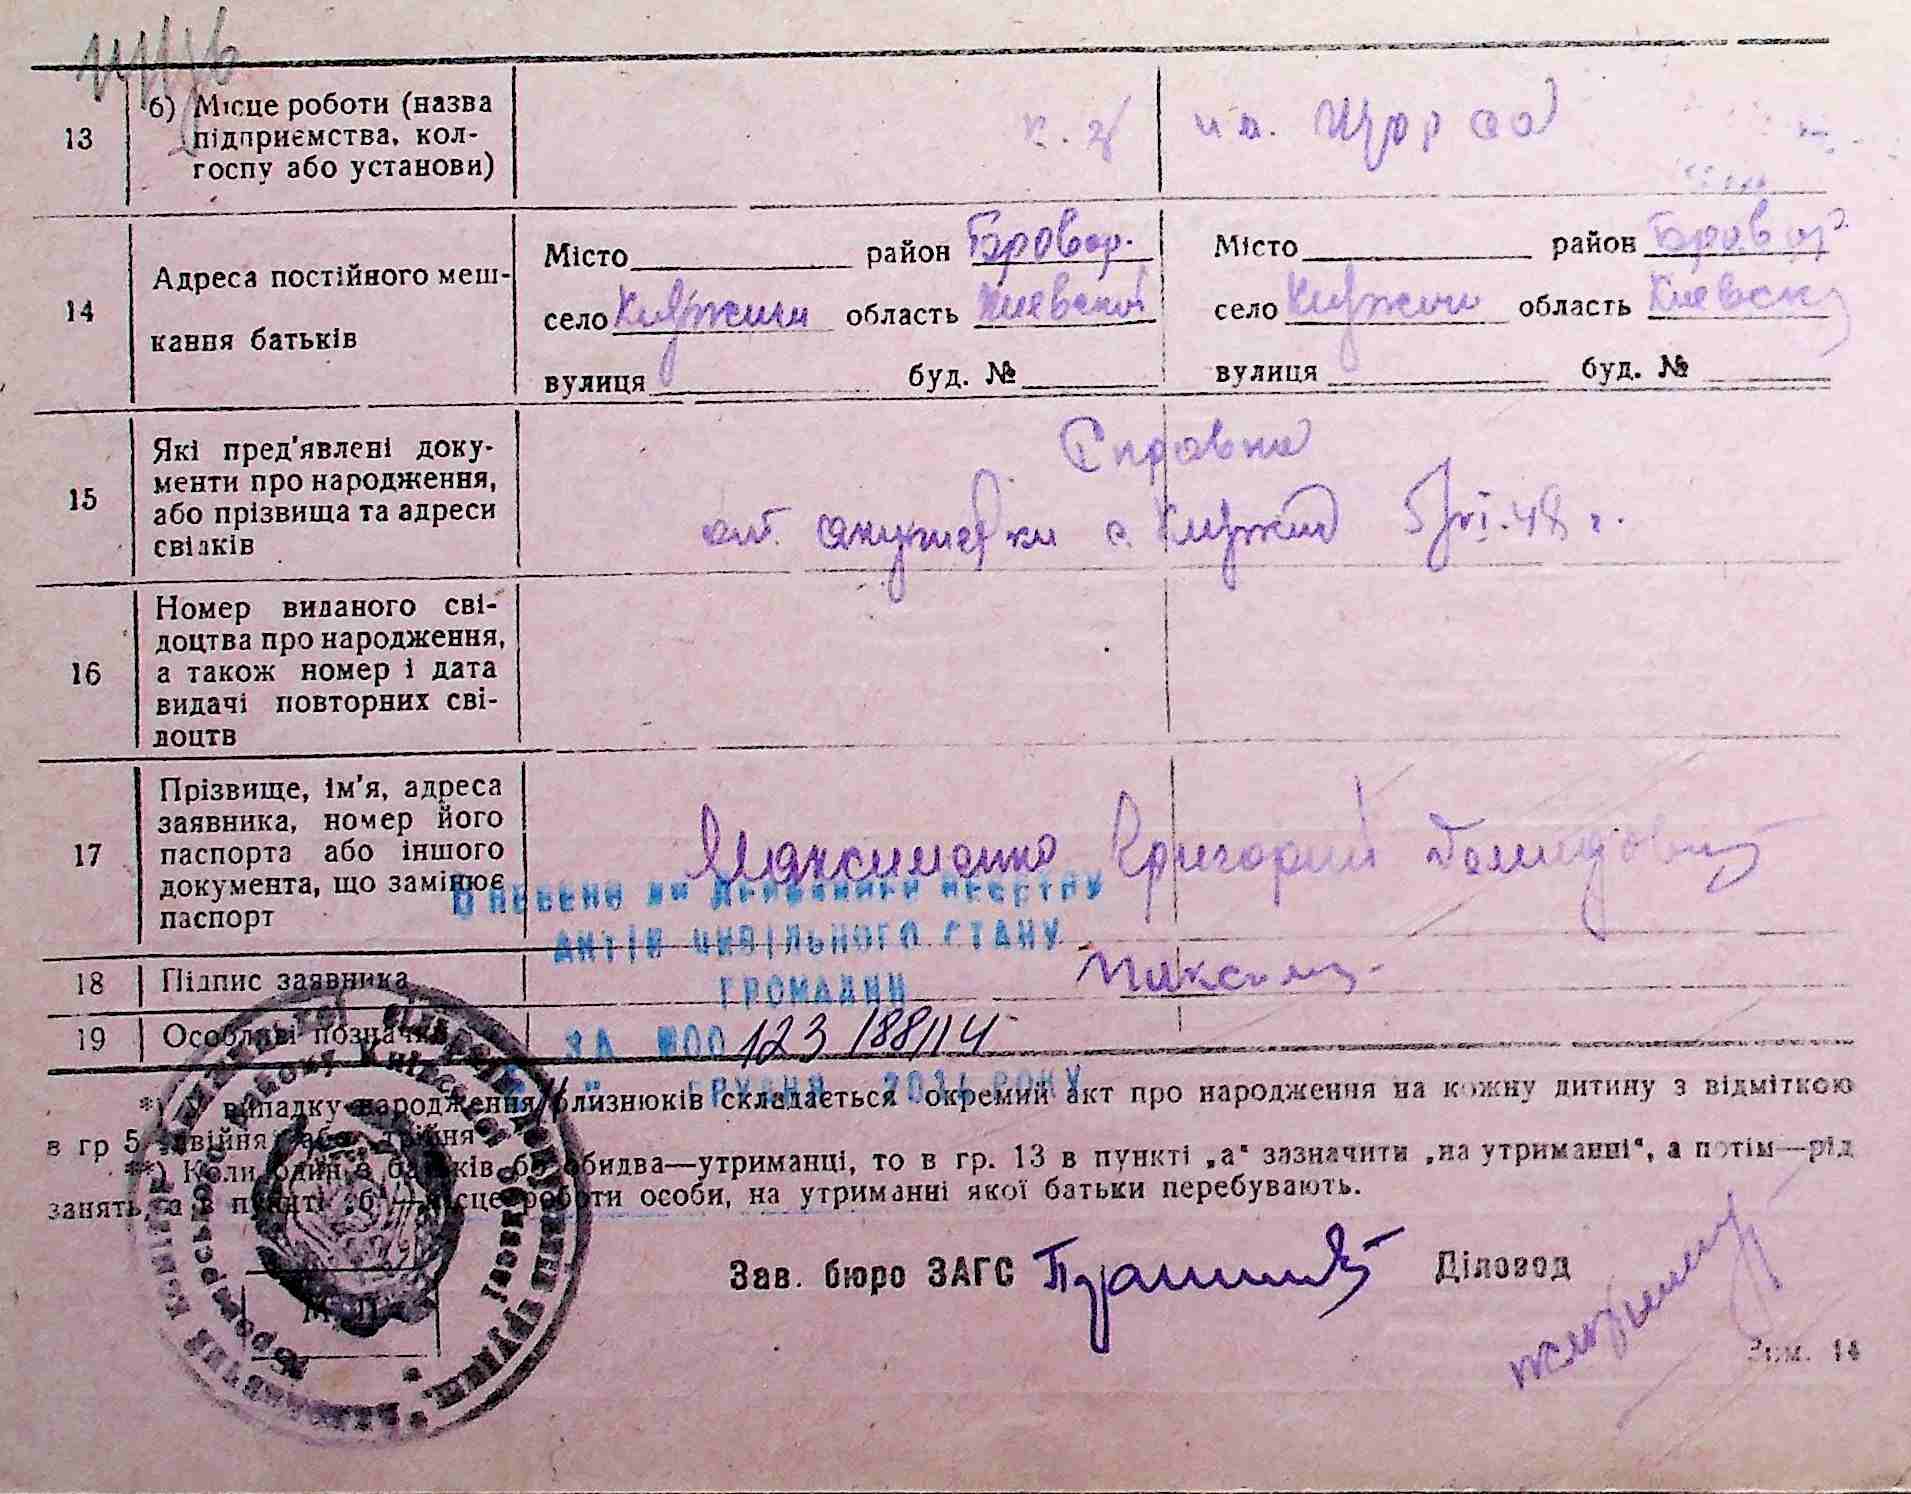 13
б) Місце роботи (назва
підприємства, кол-
госпу або установи)
к. г им. Щорса
14
Адреса постійного меш-
кання батьків
Місто район Бровар.
село Княжичи область Киевской
вулиця буд. №
Місто район Бровар
село Княжичи область Киевск
вулиця буд. №
15
Які пред'явлені доку-
менти про народження,
або прізвища та адреси
свідків
Справка
от акушерки с. Княжич 5/VI.48 г.
16
Номер виданого сві-
доцтва про народження,
а також номер і дата
видачі повторних сві-
доцтв
17
Прізвище, ім'я, адреса
заявника, номер його
паспорта або іншого
документа, що замінює
паспорт
Максименко Григорий Демидович
ВНЕСЕНО ДО ДЕРЖАВНОГО РЕЄСТРУ
АКТІВ ЦИВІЛЬНОГО СТАНУ
ГРОМАДЯН
18
Підпис заявника
Максим
19
Особливі позначки
ЗА №00123188114
ГРУДНЯ РОКУ
*) У випадку народження близнюків складається окремий акт про народження на кожну дитину з відміткою
в гр 5 „двійня“ або „трійня“
**) Коли один з батьків або обидва—утриманці, то в гр. 13 в пункті „а“ зазначити „на утриманні“, а потім—рід
занять, а в пункті „б“—місце роботи особи, на утриманні якої батьки перебувають.
Зав. бюро ЗАГС
Діловод
М. П.
Зам. 14